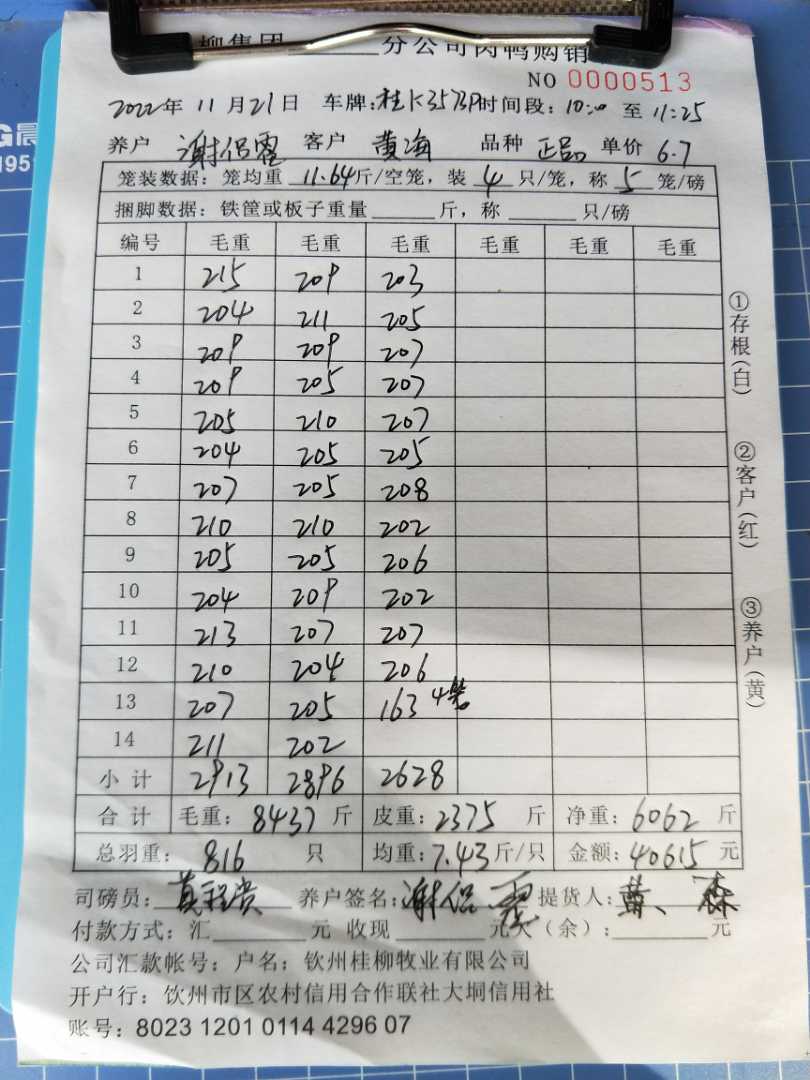 柳集团______分公司肉鸭购销
NO 0000513
2022年 11月21日 车牌:桂K3573P时间段:10:20 至 11:25
养户 谢侣霞 客户 黄海 品种 正品 单价 6.7
笼装数据:笼均重 11.64斤/空笼,装 4 只/笼,称 5 笼/磅
捆脚数据:铁筐或板子重量______斤,称______只/磅
编号 毛重 毛重 毛重 毛重 毛重 毛重
1 215 209 203
2 204 211 205
3 209 209 207
4 209 205 207
5 205 210 207
6 204 205 205
7 207 205 208
8 210 210 202
9 205 205 206
10 204 209 202
11 213 207 207
12 210 204 206
13 207 205 163 4笼
14 211 202
小计 2913 2896 2628
合计 毛重:8437斤 皮重:2375斤 净重:6062斤
总羽重:816 只 均重:7.43斤/只 金额:40615元
司磅员: 养户签名:谢侣霞 提货人:黄、森
付款方式:汇______元 收现______元欠(余):______元
公司汇款帐号:户名:钦州桂柳牧业有限公司
开户行:钦州市区农村信用合作联社大垌信用社
账号:8023 1201 0114 4296 07
①存根(白)
②客户(红)
③养户(黄)
G晨
195